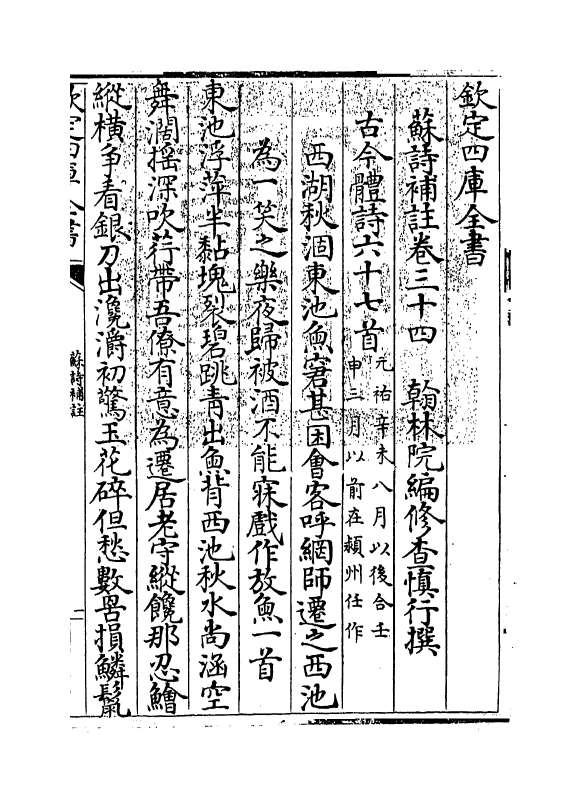 欽定四庫全書
蘇詩補註卷三十四　翰林院編修查慎行撰
古今體詩六十七首元祐辛未八月以後合壬
申三月以前在潁州任作
西湖秋涸東池魚窘甚因會客呼網師遷之西池
為一笑之樂夜歸被酒不能寐戲作放魚一首
東池浮萍半黏塊裂碧跳青出魚背西池秋水尚涵空
舞濶搖深吹荇帶吾僚有意為遷居老守縱饞那忍鱠
縱橫爭看銀刀出瀺灂初驚玉花碎但愁數罟損鱗鬣
欽定四庫全書
蘇詩補註
二